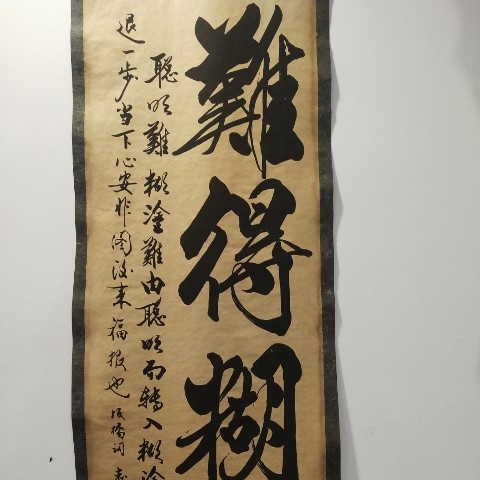 難得糊
聰明難糊塗難由聰明而轉入糊塗
退一步當下心安非圖後來福報也 板橋同志